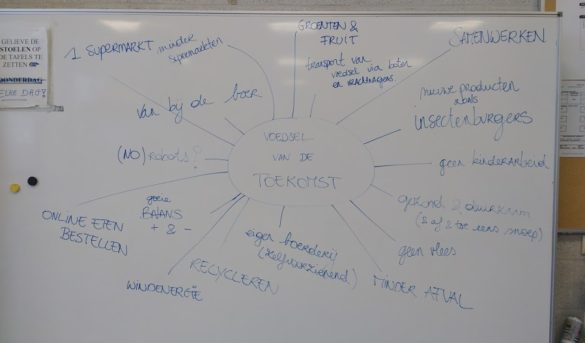 GELIEVE DE
STOELEN OP
DE TAFELS TE
ZETTEN
DONDERDAG
ELKE DAG!
1 SUPERMARKT minder
supermarkten
GROENTEN &
FRUIT
transport van
voedsel via boten
en vrachtwagens
SAMENWERKEN
nieuwe producten
zoals
insectenburgers
van bij de boer
VOEDSEL
VAN DE
TOEKOMST
(NO) robots?
geen kinderarbeid
goeie
BALANS
+ & -
gezond & duurzaam
(1 of 2 toe eens snoep)
ONLINE ETEN
BESTELLEN
eigen boerderij
(zelfvoorzienend)
geen vlees
RECYCLEREN
MINDER AFVAL
WINDENERGIE